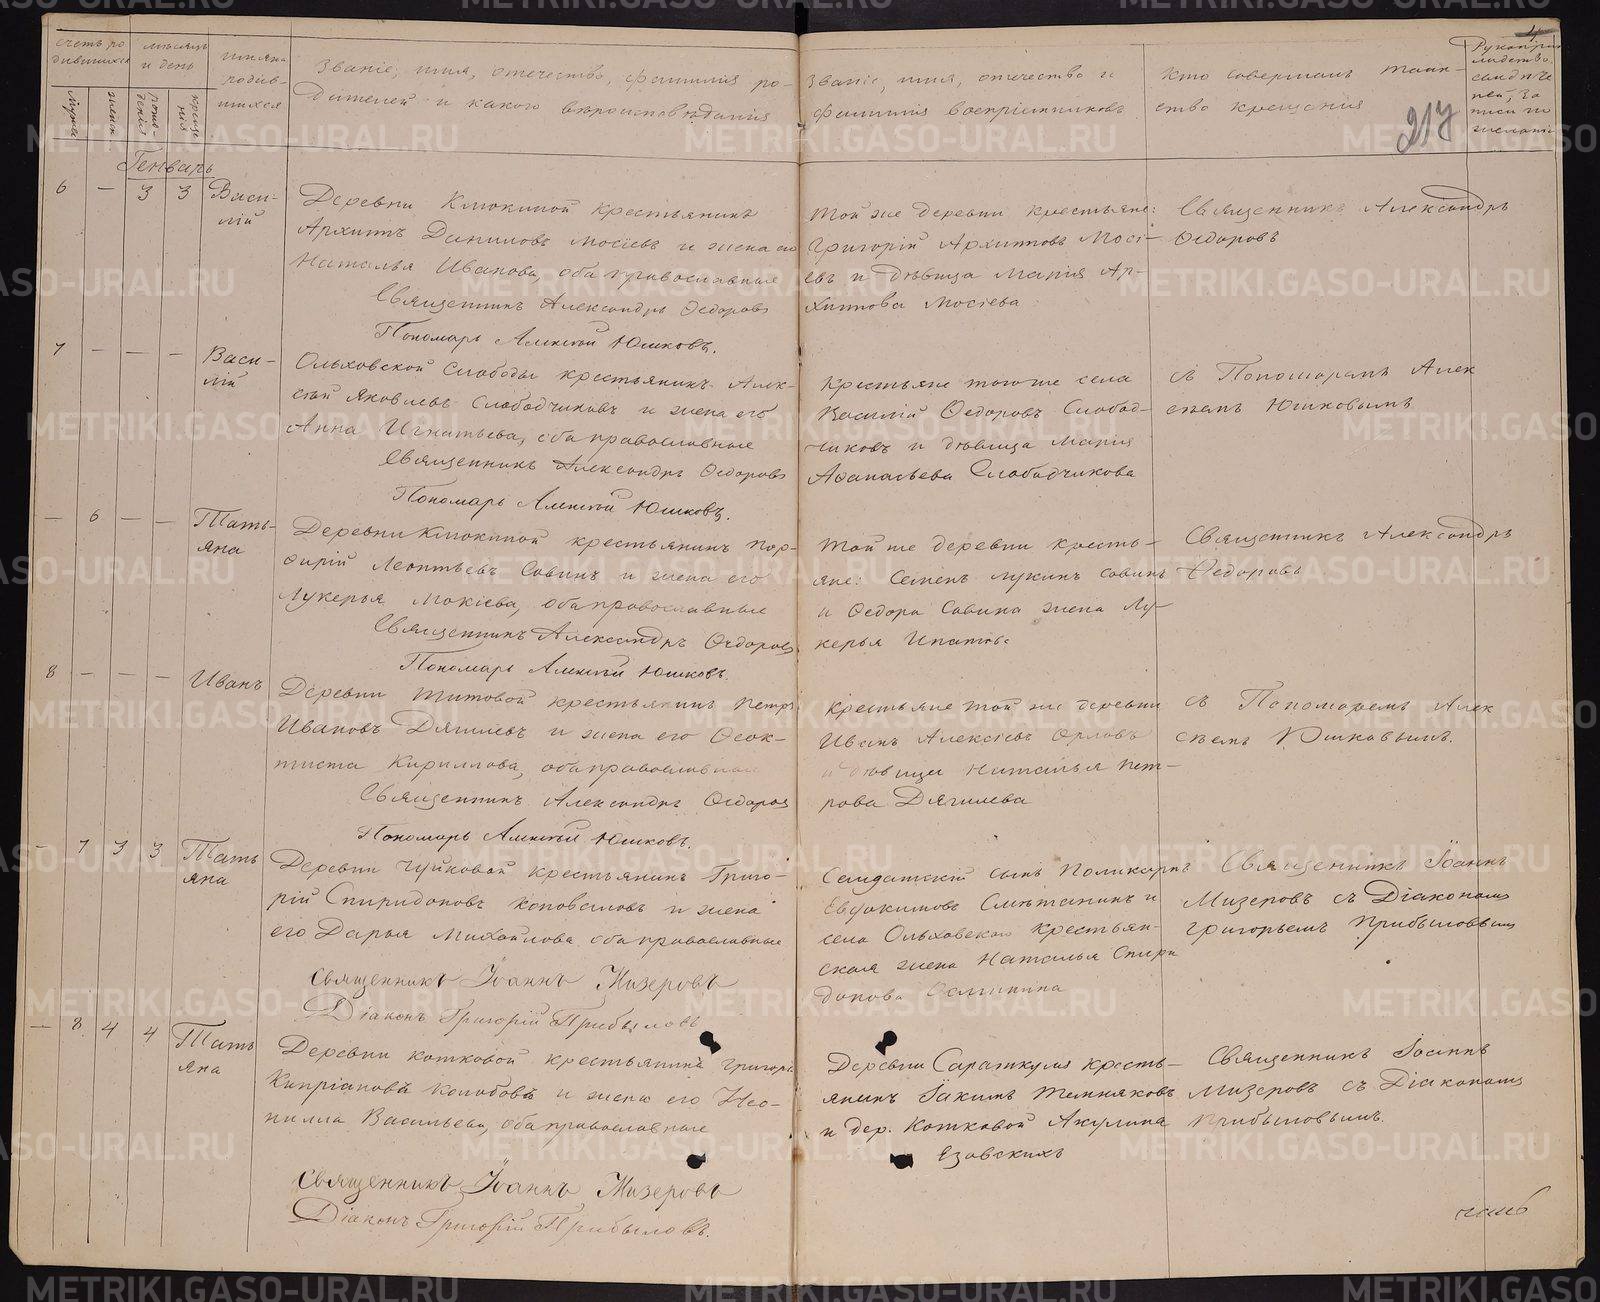 Счетъ ро
дившихся
мѣсяцъ
и день
имена
родив-
шихся
Званіе, имя, отечество, фамилія ро-
дителей и какого вѣроисповѣданія
Званіе, имя, отечество и
фамилія воспріемниковъ
Кто совершалъ таин-
ство крещенія
217
4
мужск
женск
рож-
денія
креще
нія
Генварь
6 — 3 3 Васи-
лій
Деревни Клюкиной крестьянинъ
Архипъ Даниловъ Мосіевъ и жена его
Наталья Иванова, оба православные
Священникъ Александръ Ѳедоровъ
Пономарь Алексѣй Юшковъ.
Той же деревни крестьяне:
Григорій Архиповъ Мосі-
евъ и дѣвица Марія Ар-
хипова Мосіева
Священникъ Александръ
Ѳедоровъ
7 — — — Васи-
лій
Ольховской Слободы крестьянинъ Алек-
сѣй Яковлевъ Слободчиковъ и жена его
Анна Игнатьева, оба православные
Священникъ Александръ Ѳедоровъ
Пономарь Алексѣй Юшковъ.
Крестьяне того же села
Василій Ѳедоровъ Слобод-
чиковъ и дѣвица Марія
Аѳанасьева Слободчикова
съ Пономаремъ Алек
сѣемъ Юшковымъ
— 6 — — Тать-
яна
Деревни Клюкиной крестьянинъ Пор-
фирій Леонтьевъ Савинъ и жена его
Лукерья Мокіева, оба православные
Священникъ Александръ Ѳедоровъ
Пономарь Алексѣй Юшковъ.
Той же деревни кресть-
яне: Семенъ Лукинъ Савинъ
и Ѳедора Савина жена Лу-
керья Ипатова
Священникъ Александръ
Ѳедоровъ
8 — — — Иванъ
Деревни Титовой крестьянинъ Петръ
Ивановъ Дягилевъ и жена его Ѳеок-
тиста Кириллова, оба православные
Священникъ Александръ Ѳедоровъ
Пономарь Алексѣй Юшковъ.
крестьяне той же деревни
Иванъ Алексѣевъ Орловъ
и дѣвица Наталья Пет-
рова Дягилева
съ Пономаремъ Алек
сѣемъ Юшковымъ.
— 7 3 3 Тать
яна
Деревни Чуйковой крестьянинъ Григо-
рій Спиридоновъ Коноваловъ и жена
его Дарья Михайлова, оба православные
Священникъ Іоаннъ Мизеровъ
Діаконъ Григорій Прибыловъ
Солдатскій сынъ Поликарпъ
Евфокимовъ Смѣтанинъ и
села Ольховскаго крестьян-
ская жена Наталья Спири
донова Осминина
Священникъ Іоаннъ
Мизеровъ съ Діакономъ
Григорьемъ Прибыловымъ
— 8 4 4 Тать
яна
Деревни Котковой крестьянинъ Григорій
Кипріановъ Колобовъ и жена его Нео-
нилла Васильева, оба православные
Священникъ Іоаннъ Мизеровъ
Діаконъ Григорій Прибыловъ.
Деревни Сараткуля кресть-
янинъ Іакимъ Темняковъ
и дер. Котковой Акулина
Язовскихъ
Священникъ Іоаннъ
Мизеровъ съ Діакономъ
Прибыловымъ.